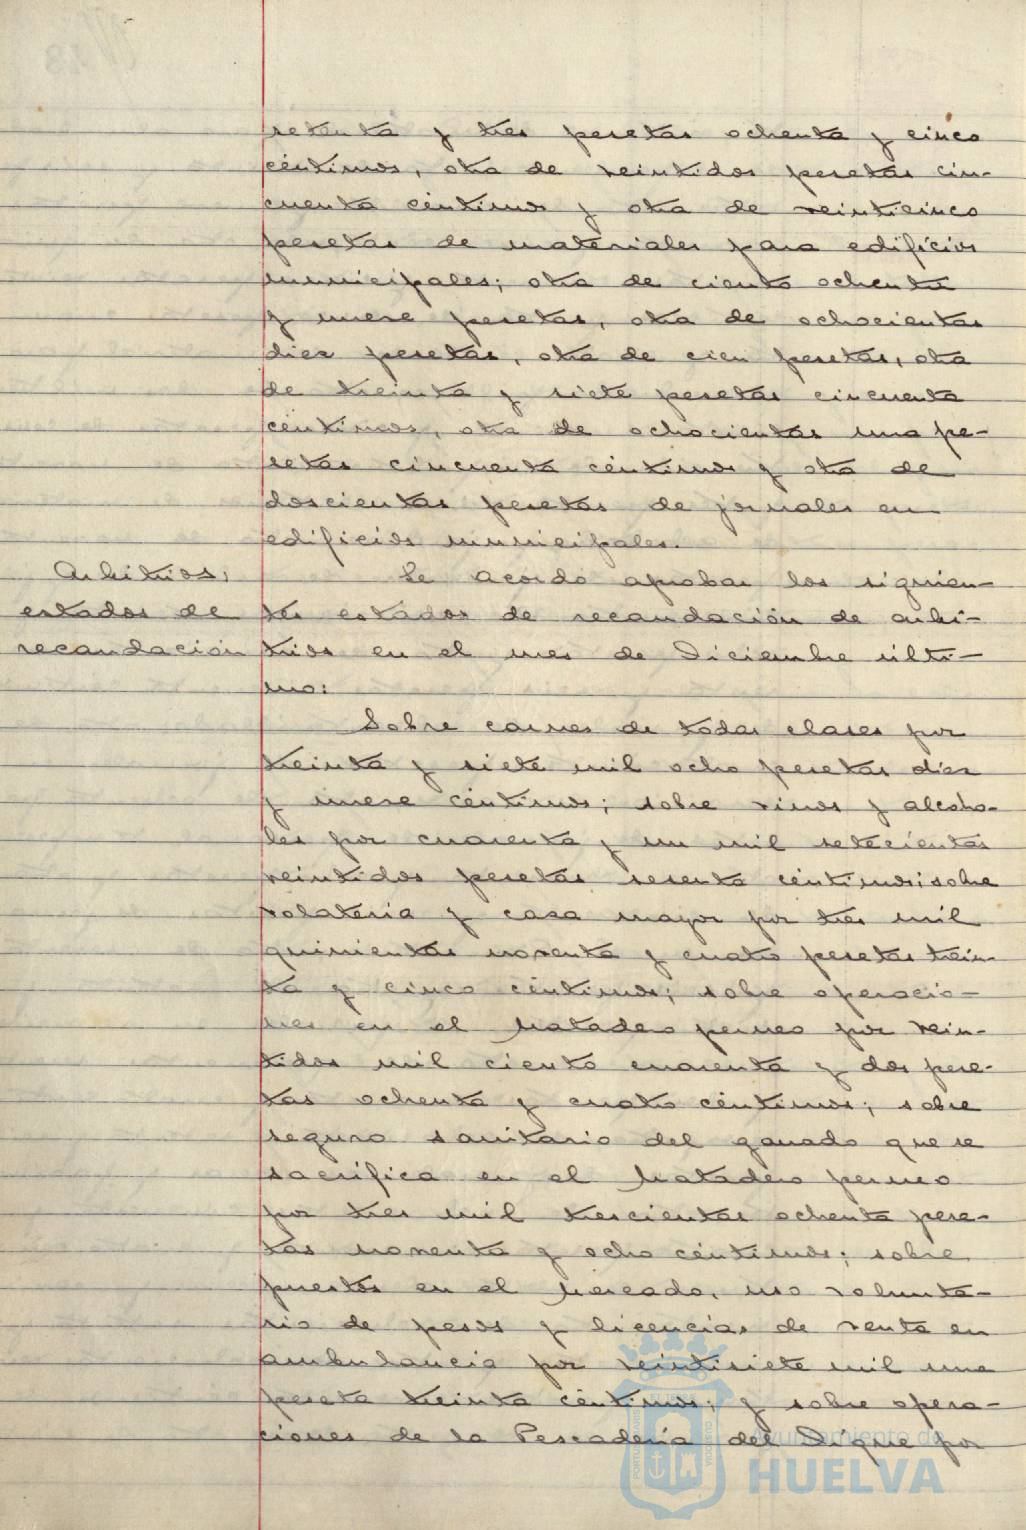 setenta y tres pesetas ochenta y cinco
céntimos, otra de veintidos pesetas cin-
cuenta céntimos y otra de veinticinco
pesetas de materiales para edificios
municipales; otra de ciento ochenta
y nueve pesetas, otra de ochocientas
diez pesetas, otra de cien pesetas, otra
de treinta y siete pesetas cincuenta
céntimos, otra de ochocientas una pe-
setas cincuenta céntimos y otra de
doscientas pesetas de jornales en
edificios municipales.
Arbitrios,
estados de
recaudación
Se acordó aprobar los siguien-
tes estados de recaudación de arbi-
trios en el mes de Diciembre últi-
mo:
Sobre carnes de todas clases por
treinta y siete mil ocho pesetas diez
y nueve céntimos; sobre vinos y alcoho-
les por cuarenta y un mil setecientas
veintidos pesetas sesenta céntimos; sobre
volateria y casa mayor por tres mil
quinientas noventa y cuatro pesetas trein-
ta y cinco céntimos; sobre operacio-
nes en el Matadero perneo por vein-
tidos mil ciento cuarenta y dos pese-
tas ochenta y cuatro céntimos; sobre
seguro sanitario del ganado que se
sacrifica en el Matadero perneo
por tres mil trescientas ochenta pese-
tas noventa y ocho céntimos; sobre
puestos en el Mercado, uso volunta-
rio de pesos y licencias de venta en
ambulancia por veintisiete mil una
peseta treinta céntimos; y sobre opera-
ciones de la Pescadería del Dique por
Ayuntamiento de
HUELVA